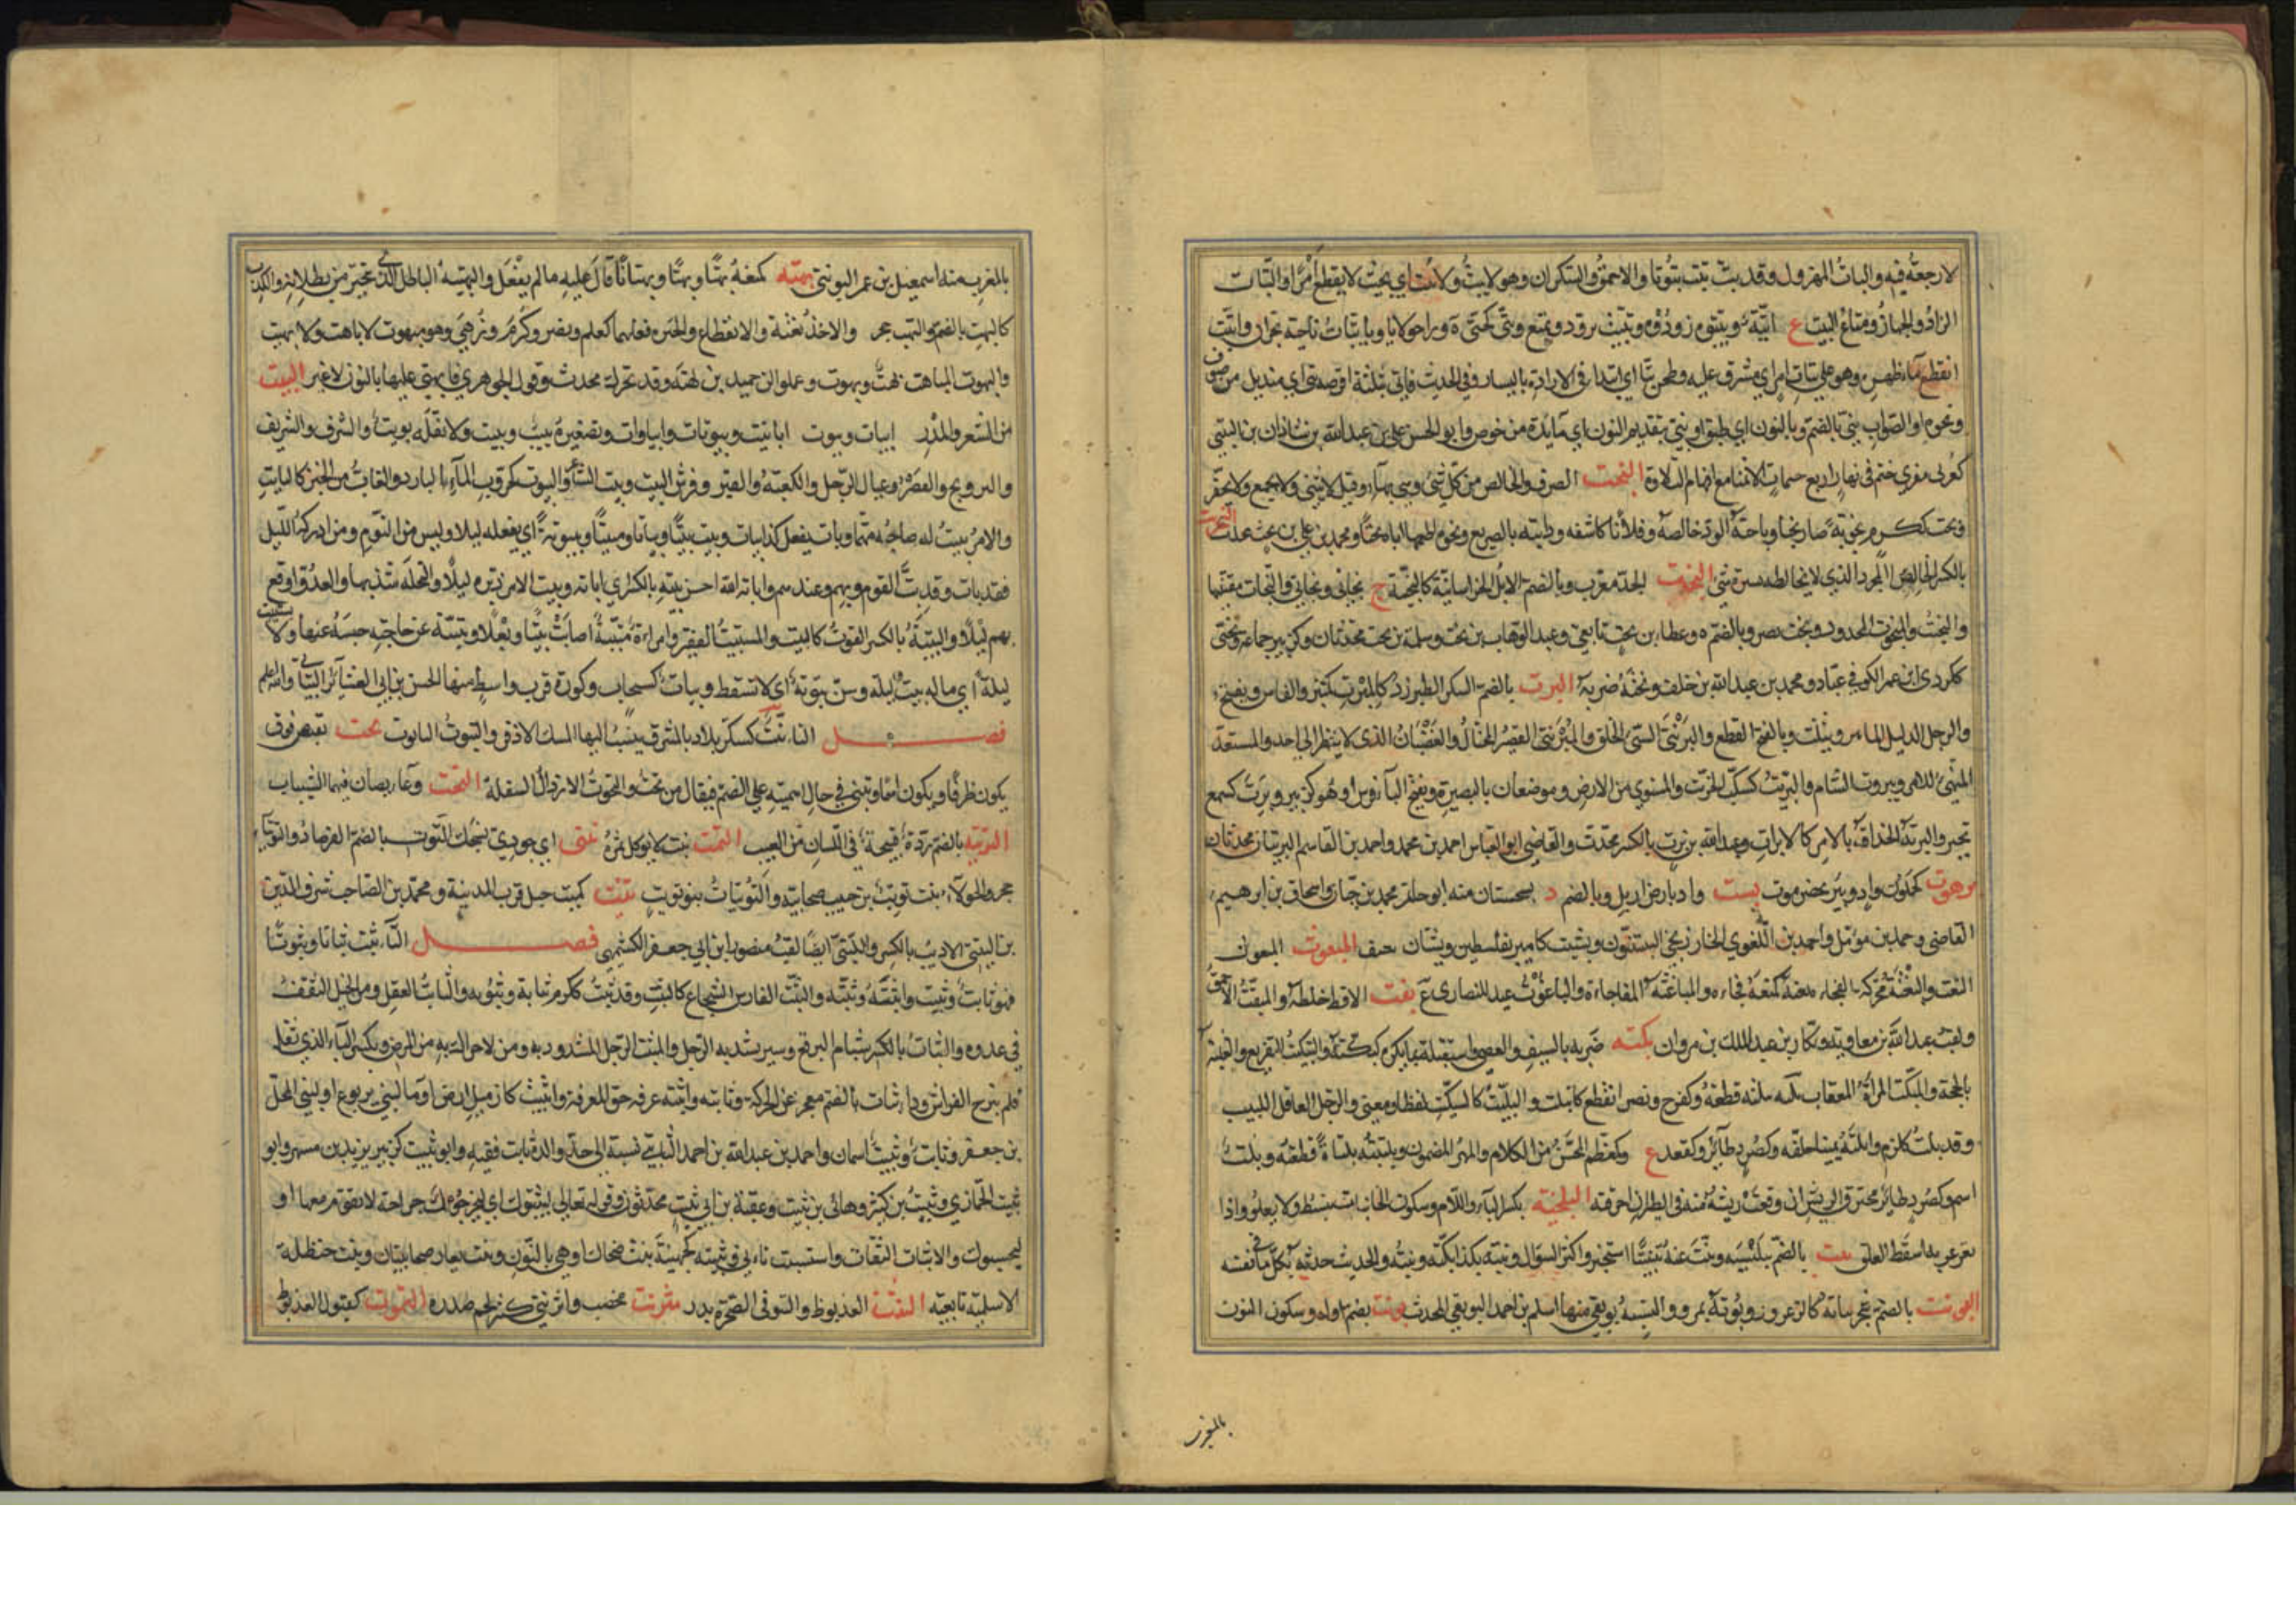 لا رجعة فيه والبات المهزول وقد بت يبت بتوتا والاحمق والسكران وهو لا يبت ولا يبت اي بحيث لا يقطع امرا والبتات
الزاد والجهاز ومتاع البيت ع ابتة وبتتوه زودوه وتبتت تزود وتمتع وبتى كحتى ة وراحولايا وبابتات ناحية بحران وانبت
انقطع ماء ظهره وهو على بتات امر اي مشرف عليه وطحن بتا اي ابتدا في الادارة باليسار وفي الحديث فاتي بثلثة اقرصة على بتي اي منديل من صوف
ونحوه او الصواب بني بالضم وبالنون اي طبق او نبي بتقديم النون اي مائدة من خوص وابو الحسن علي بن عبد الله بن شاذان بن البتتي
كعرني مقري ختم في نهار اربع ختمات الا ثمنا مع افهام التلاوة البحت الصرف والخالص من كل شيء وهي بهاء وقيل لا يثنى ولا يجمع ولا يحقر
وبحت ككرم بحوتة صار بحتا وباحته الود خالصه وفلانا كاشفه ودابته بالضريع ونحوه اطعمها اياه بحتا ومحمد بن علي بن بحت محدث البحريت
بالكسر الخالص المجرد الذي لا يخالطه ستره شيء البخت الجد معرب وبالضم الابل الخراسانية كالبختية ج بخاتي وبخاتى والبخات مقتنيها
والبخيت والمبخوت المجدود وبخت نصر وبالضم ه وعطاء بن بخت تابعي وعبد الوهاب بن بخت وسلمة بن بخت محدثان وكزبير جماعة وبختي
ككردي ابن عمر الكوفي عباد ومحمد بن عبد الله بن خلف وبخته ضربه البرت بالضم السكر الطبرزذ كالمبرت كمنبر والفاس ويفتح
والرجل الدليل الماهر ويثلث وبالفتح القطع والبرنتى السيئ الخلق والمبرنتي القصير المختال والغضبان الذي لا ينظر الى احد والمستعد
المتهيئ للامر وبيروت د بالشام والبريت كسكيت الخريت والمستوي من الارض وموضعان بالبصرة وبفتح الباء فرس او هو كزبير وبرت كسمع
تحير والبرتة الحذاقة بالامر كالابرات وعبد الله بن برت بالكسر محدث والقاضي ابو العباس احمد بن محمد واحمد بن القاسم البرتيان محدثان
برهوت كحلزون واد وبئر بحضرموت بست واد بارض اربل وبالضم د بسجستان منه ابو حاتم محمد بن حبان واسحاق بن ابرهيم
القاضي وحمد بن مؤمل واحمد بن اللغوي الخارزنجي البستيون وبشيت كامير بفلسطين وبشتان بنسف المبعوت المبعوث
البغت والبغتة محركة الفجاءة بغته كمنعه فجاءه والمباغتة المفاجاءة والباغوت عيد للنصارى ع بقت الاقط خلطه والمبقت الاحمق
ولقب عبد الله بن معاوية وبكار بن عبد الملك بن مروان بكته ضربه بالسيف والعصى واستقبله بما يكره كبكته والتبكيت التقريع والغلبة
بالحجة والمبكت المراة المعقاب بلته يبلته قطعه وكفرح ونصر انقطع كانبلت والبليت كالسكيت لفظا ومعنى والرجل العاقل اللبيب
وقد بلت ككرم وابلته يمينا حلفه وكصرد طائر وكمقعد ع وكمعظم المحسن من الكلام والمهر المضمون وبلته بلتاة قطعته وبلت
اسم وكصرد طائر محترق الريش ان وقعت ريشة منه في الطير احرقته البلخته بكسر الباء واللام وسكون الخاء نبات ينبسط ولا يعلو واذا
تغرغر به اسقط العلق بنت بالضم ببلنسية وبنت عنه تبنيتا استخبر واكثر السؤال وبنته بكذا بكته وبنته الحديث حدثه بكل ما في نفسه
البونت بالضم شجر نباته كالزعرور وبوتة بمرو والنسبة بوتقي منها اسلم بن احمد البوتقي المحدث بونت بضم اوله وسكون النون
بالمغرب
بالمغرب منه اسمعيل بن عمر البونتي بهته كمنعه بهتا وبهتا وبهتانا قال عليه ما لم يفعل والبهيتة الباطل الذي يتحير من بطلانه والكذب
كالبهت بالضم والبهت حجر والاخذ بغتة والانقطاع والحيرة فعلهما كعلم ونصر وكرم وزهي وهو مبهوت لا باهت ولا بهيت
والبهوت المباهت بهت وبهوت وعمرو ابن حميد بن بهتة وقد تحرك محدث وقول الجوهري فابهتي عليها بالنون لا غير البيت
من الشعر والمدر ابيات وبيوت ابابيت وبيوتات وابياوات وتصغيره بييت وبييت ولا تقل بويت والشرف والشريف
والتزويج والقصر وعيال الرجل والكعبة والقبر وفرش البيت وبيت الشاعر والبيوت كتروب الماء البارد والغاب من الخبز كالبائت
والامر يبيت له صاحبه مهتما وبات يفعل كذا يبيت ويبات بيتا وبياتا ومبيتا وبيتوتة اي يفعله ليلا وليس من النوم ومن ادركه الليل
فقد بات وقد بت القوم وبهم وعندهم واباته الله احسن بيتة بالكسر اي اباتة وبيت الامر دبره ليلا والنخلة شذبها والعدو اوقع
بهم ليلا والبيتة بالكسر القوت كالبيت والمستبيت الفقير وامراة متبيتة اصابت بيتا وبعلا وتبيته عن حاجته حبسه عنها ولا يستبيت
ليلة اي ما له بيت ليلة وسن بيوتة اي لا تسقط وبيات كسحاب وكورة قرب واسط منها الحسن بن ابي العشائر البياتي والله اعلم
فصل التاء تبت كسكر بلاد بالمشرق ينسب اليها المسك الاذفر والتبوت التابوت تحت نقيض فوق
يكون ظرفا ويكون اسما ويبنى في حال اسميته على الضم فيقال من تحت والتحوت الارذال السفلة التخت وعاء يصان فيها الثياب
الترتة بالضم ردة قبيحة في اللسان من العيب التمت نبت لا يؤكل ثمره تنتي اي جودي نسجك التوت بالضم الفرصاد والتوتياء
حجر والحولاء بنت تويت بن حبيب صحابية والتويتات بنو تويت تيت كميت جبل قرب المدينة ومحمد بن الصاحب شرف الدين
بن التيتي الاديب بالكسر والتيتي ايضا لقب منصور ابن ابي جعفر الكشميهني فصل الثاء ثبت ثباتا وثبوتا
فهو ثابت وثبيت وثبت واثبته وثبته والثبت الفارس الشجاع كالثبيت وقد ثبت ككرم ثباتة وثبوتة والثابت العقل ومن الخيل الثقف
في عدوه والثبات بالكسر شبام البرقع وسير يشد به الرحل والمثبت الرحل المشدود به ومن لا حراك به من المرض وبكسر الباء الذي ثقل
فلم يبرح الفراش وداء ثبات بالضم معجز عن الحركة وثابته واثبته عرفه حق المعرفة واثبيت كازميل ارض او ماء لبني يربوع او لبني المحل
بن جعفر وثابت وثبيت اسمان واحمد بن عبد الله بن احمد الثابتي نسبة الى جد والده ثابت فقيه وابو ثبيت كزبير يزيد بن مسهر وابو
ثبيت الجمازي وثبيت بن كثير وهانئ بن ثبيت وعقبة بن ابي ثبيت محدثون وقوله تعالى ليثبتوك اي ليجرحوك جراحة لا تقوم معها او
ليحبسوك والاثبات الثقات واستثبت تانى وثبيتة كجهينة بنت ضحاك او هي بالنون وبنت يعار صحابيتان وبنت حنظلة
الاسلمية تابعية الثت العذيوط والشق في الصخرة بدد مثرنت مخصب واثرنتى كثر لحم صدره الثموت كقبول العذيوط